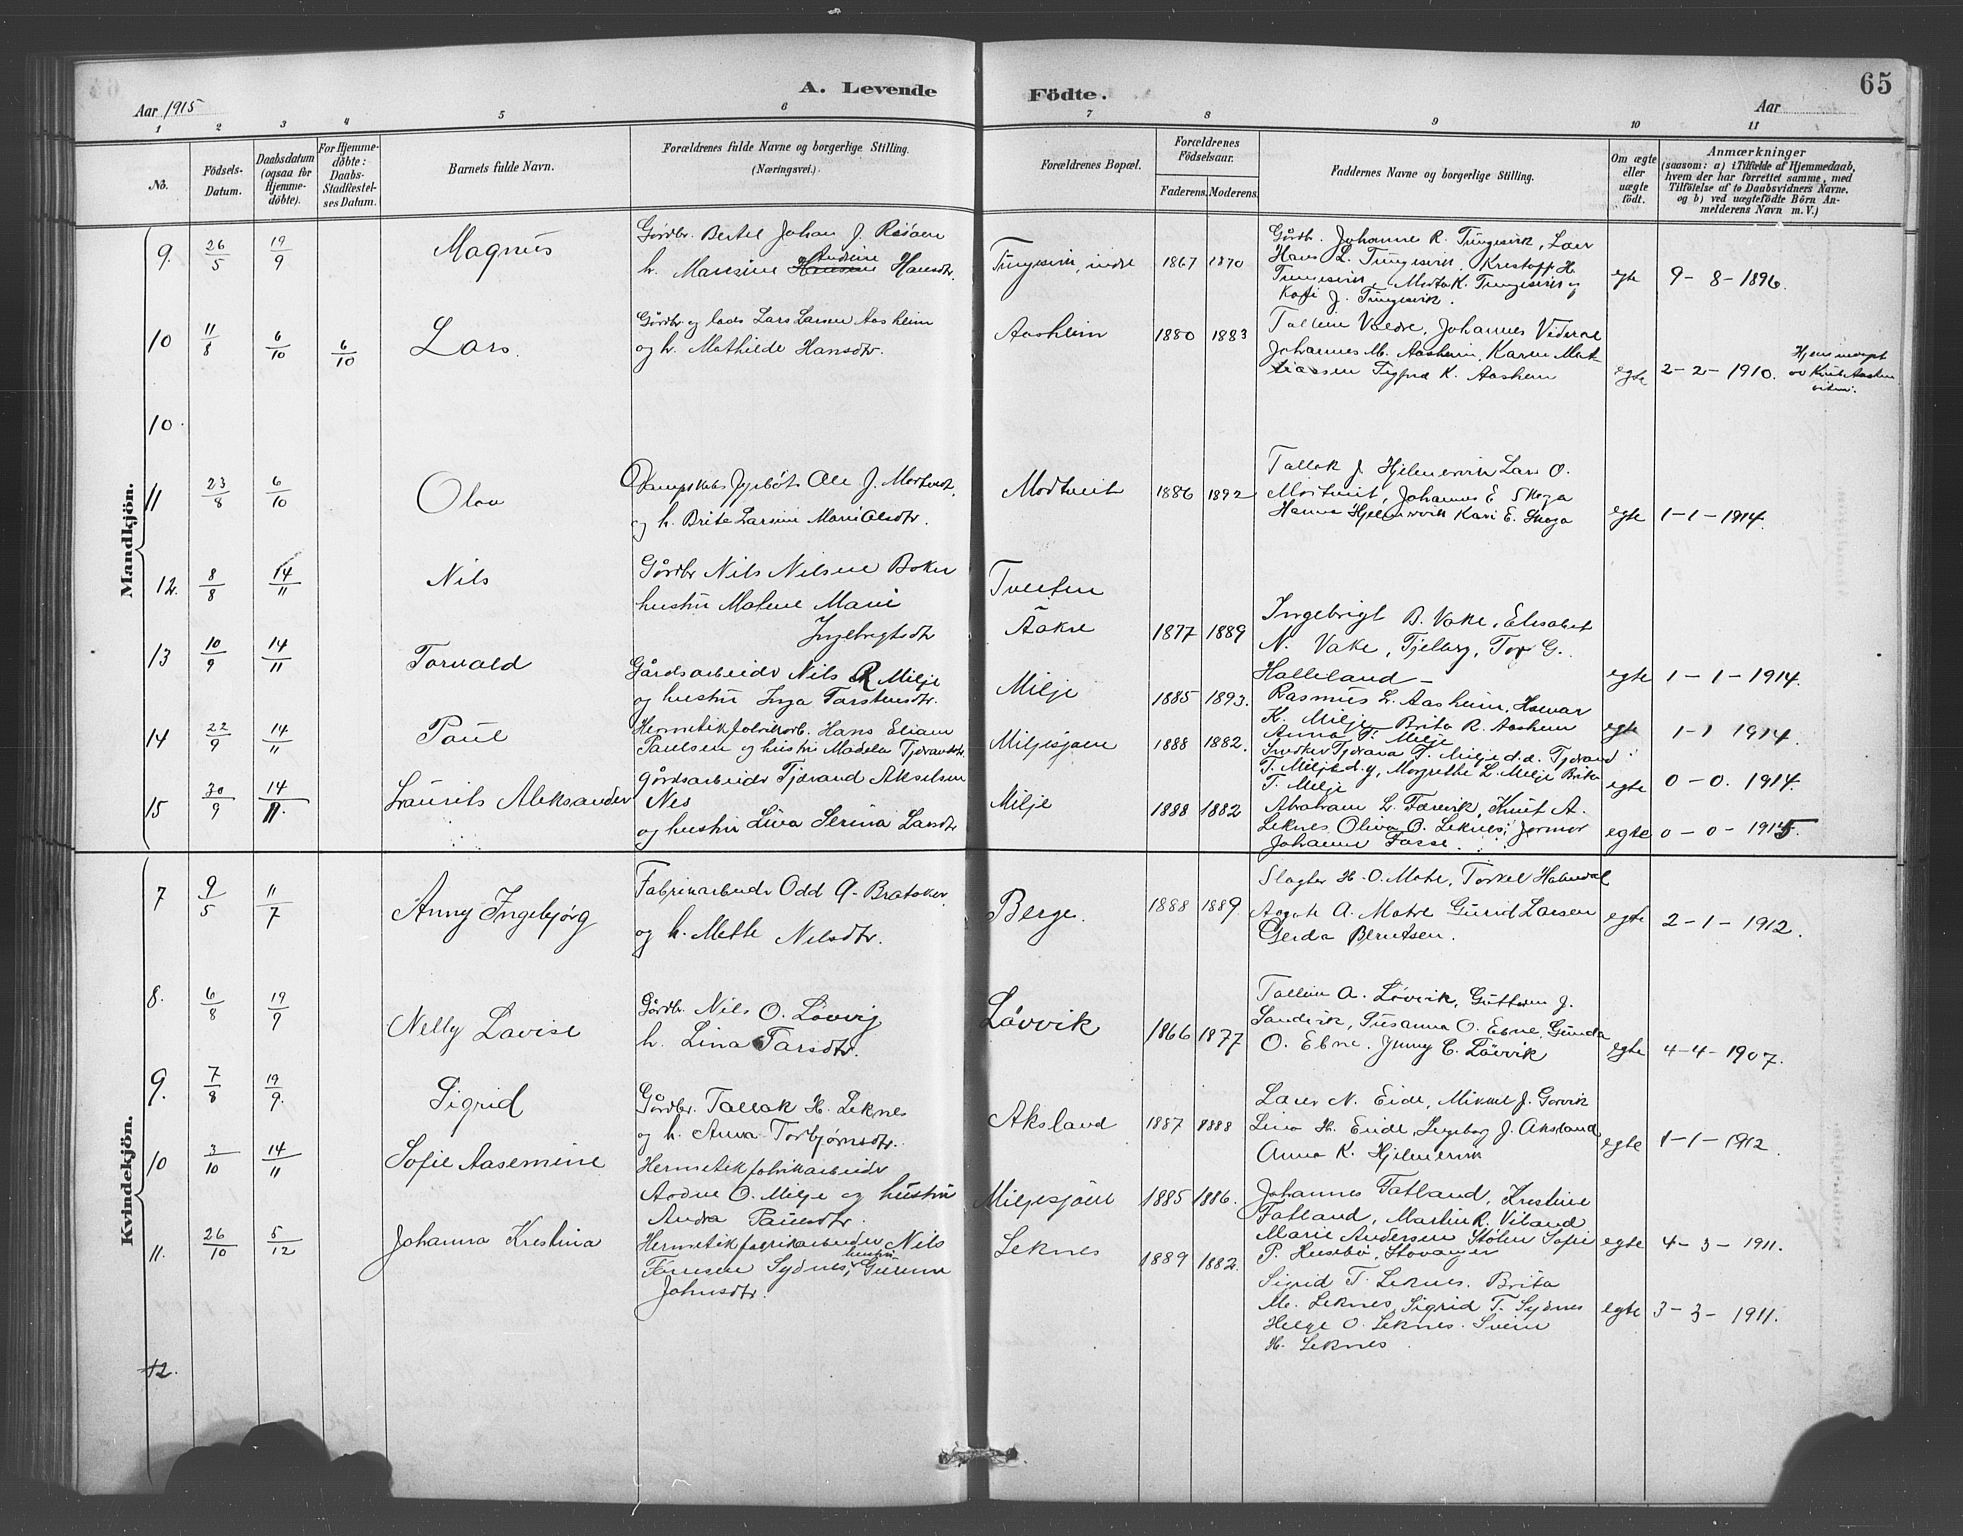 Aar 1915
A. Levende
Födte.
Aar
65
1 2 3 4 5 6 7 8 9 10 11
No.
Födsels-Datum.
Daabsdatum (ogsaa for Hjemme-döbte).
For Hjemme-döbte: Daabs-Stadfæstel-ses Datum.
Barnets fulde Navn.
Forældrenes fulde Navne og borgerlige Stilling.
(Næringsvei.)
Forældrenes Bopæl.
Forældrenes Födselsaar.
Faderens. Moderens.
Faddernes Navne og borgerlige Stilling.
Om ægte eller uægte födt.
Anmærkninger
(saasom: a) i Tilfælde af Hjemmedaab,
hvem der har forrettet samme, med
Tilföielse af to Daabsvidners Navne.
og b) ved uægtefödte Börn An-
melderens Navn m. V.)
Mandkjön.
9. 26/5 19/9 Magnus
Gårdbr. Bertel Johan J.
h. Hansdtr.
Tungesvik, indre 1867 1870
Gårdb. Johanne R. Tungesvik, Lars
Hans L. Tungesvik, Kristoffer H.
Tungesvik, K. Tungesvik og
J. Tungesvik.
egte 9-8-1896.
10 11/8 6/10 6/10 Lars.
Gårdbr. og Lars Larsen Aasheim
og h. Mathilde Hansdtr.
Aasheim 1880 1883
Johannes
Johannes M. Aasheim, Karen Mat
K. Aasheim
egte 2-2-1910.
10.
11 23/8 6/10 Olav
Ole J.
og h. Brite Larsine Marie Olsdtr.
Mortveit 1886 1892
J. Hjelmervik Lars O.
Mortveit, Johannes E. Skoga
Hanna Hjelmervik Kari E. Skoga
egte 1-1-1914.
12. 8/8 14/11 Nils
Gårdbr Nils Nilsen
hustru Malene Marie
Ingebrigtsdtr
Tveiten
Aakre 1877 1889
Ingebrigt B. Vake, Elisabet
N. Vake, Fjelberg, G.
Halleland –
egte 1-1-1914.
13 10/9 14/11 Torvald
Gårdsarbeider Nils R Milje
og hustru Inga Torstensdtr.
Milje 1885 1893.
Rasmus L. Aasheim,
K. Milje, Brita R. Aasheim
Milje
egte 1-1 1914.
14 22/9 14/11 Paul
Hermetikfabrikarb. Hans Eliam
Paulsen og hustru
Miljesjøen 1888 1882.
T. Milje
T. Milje Margrethe L. Milje Brita
T. Milje
egte 0-0. 1914.
15 30/9 14/11. Laurits Aleksander
gårdsarbeider Tjerand Akselsen
Nes
og hustru Lina Serina Larsdtr
Milje 1888 1882
Abraham L. Færevik, Knut A.
Leknes, Oliva O. Leknes, Jormor
Johanne Fosse.
egte 0-0-1915.
Kvindekjön.
7 9/5 11/7 Anny Ingebjørg
Fabrikarbeider Odd
og h. Mette Nilsdtr.
Berge. 1888 1889.
Slagter H. O. Matre, Torkel
Aagot A. Matre Gurid Larsen
Gerda Berntsen.
egte 2-1-1912.
8. 6/8 19/9 Nelly Lavise
Gårdbr. Nils O. Løvvig
h. Lina
Løvvik 1866 1877
A. Løvvik, J.
Susanna O. Ebne, Gunda
O. Ebne, Jenny C. Løvvik
egte 4-4-1907.
9. 7/8 19/9. Sigrid
Gårdbr. Tallak H. Leknes
og h. Anna Torbjørnsdtr.
Aksland 1887 1888
Lars N. Eide, Mikael J.
Lina H. Eide, Ingeborg J. Aksland
Anna K. Hjelmervik
egte 1-1-1912.
10 3/10 14/11 Sofie Aasemine
Hermetikfabrikarbeider
O. Milje og hustru
Andrea Paulsdtr.
Miljesjøen 1885 1886.
Johannes Tatland, Kristine
Tatland, Martin R. Viland
Marie Andersen Stølen Sofie
P. Husebø, Stavanger
egte 4-3-1911.
11. 26/10 5/12 Johanna Kristina
Hermetikfabrikarbeider Nils
Sydnes, hustru
Johnsdtr.
Leknes 1889 1882.
Sigrid T. Leknes. Brita
M. Leknes, Sigrid T. Sydnes
Helge O. Leknes. Svein
H. Leknes.
egte 3-3-1911.
12.